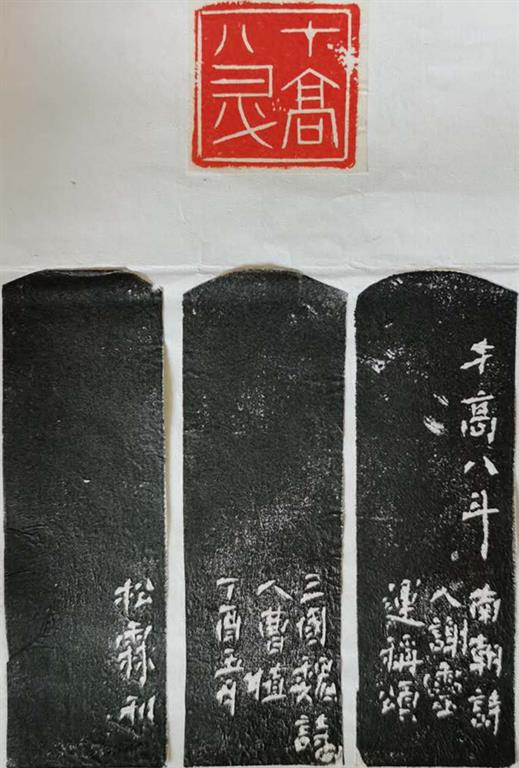 才高
八斗
才高八斗南朝詩
人謝靈
運稱頌
三國魏詩
人曹植
丁酉五月
松霖刊